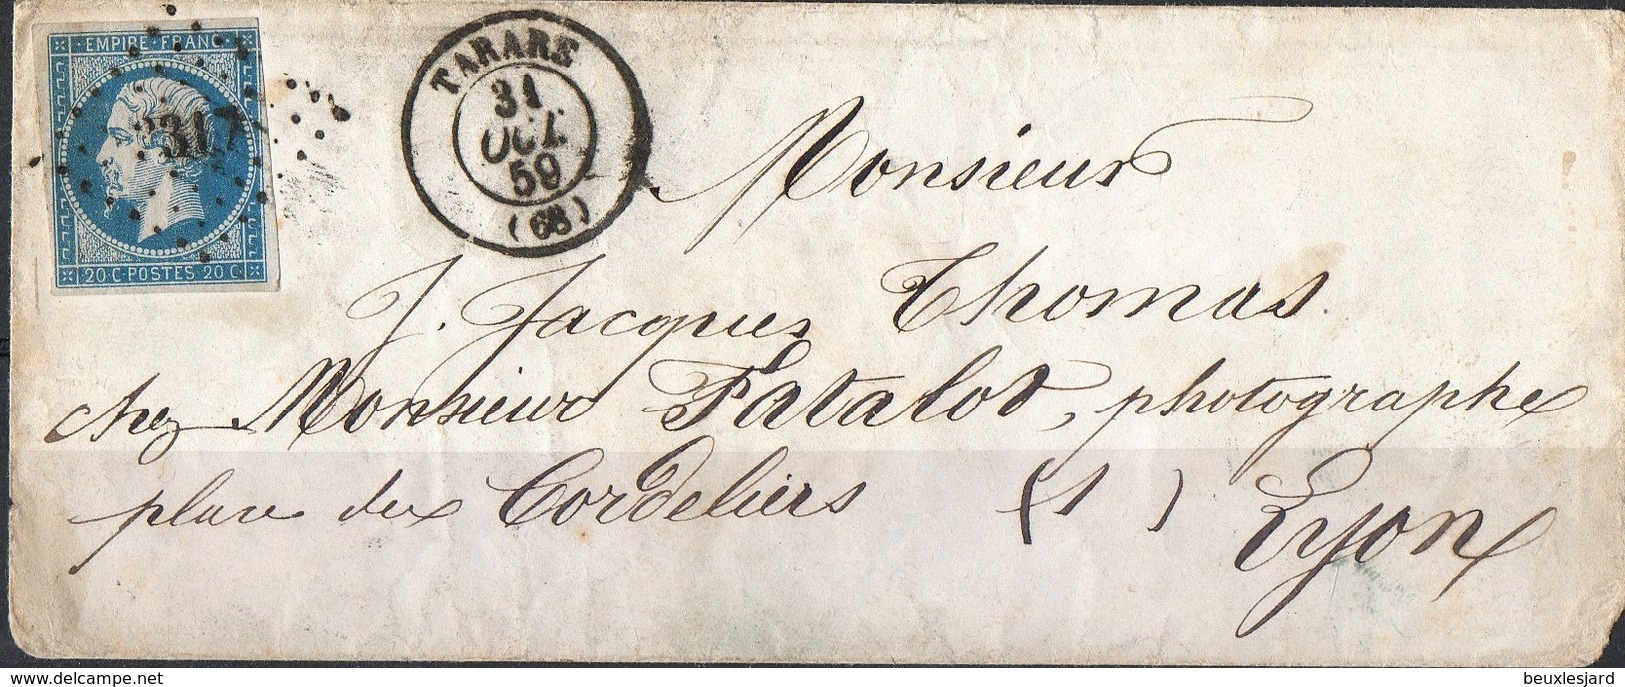 EMPIRE FRANC
3317
20 C POSTES 20 C
TARARE
31
OCT.
59
(68)
Monsieur
J. Jacques Thomas
chez Monsieur Fatalot, photographe
place des Cordeliers (1) Lyon
www.delcampe.net
beuxlesjard